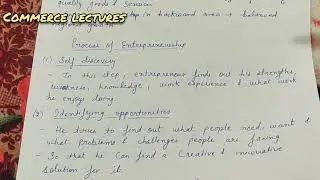 quality goods & services
Commerce lectures
step in backward area → balanced
Process of Entrepreneurship
(1) Self discovery
- In this step, entrepreneur finds out his strengths,
weakness, knowledge, work experience & what work
he enjoys doing.
(2) Identifying opportunities
- He tries to find out what people need, want &
what problems & challenges people are facing
- So that he can find a creative & innovative
solution for it.